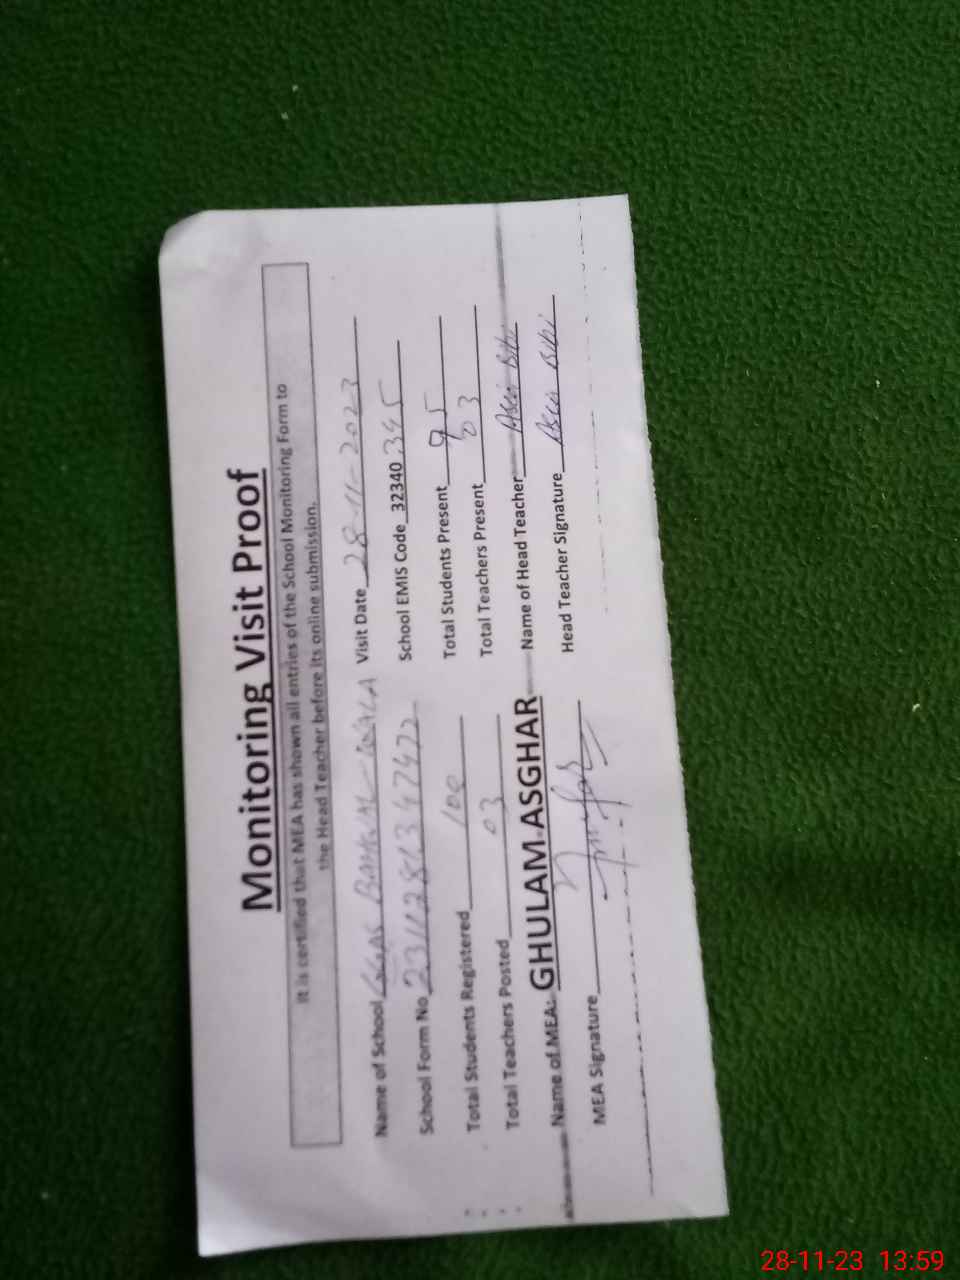 Monitoring Visit Proof
It is certified that MEA has shown all entries of the School Monitoring Form to
the Head Teacher before its online submission.
Name of School Visit Date 28-11-2023
School Form No 2311281347422 School EMIS Code 32340 345
Total Students Registered 100 Total Students Present 95
Total Teachers Posted 03 Total Teachers Present 03
Name of MEA: GHULAM ASGHAR Name of Head Teacher Bibi
MEA Signature Head Teacher Signature Bibi
28-11-23 13:59